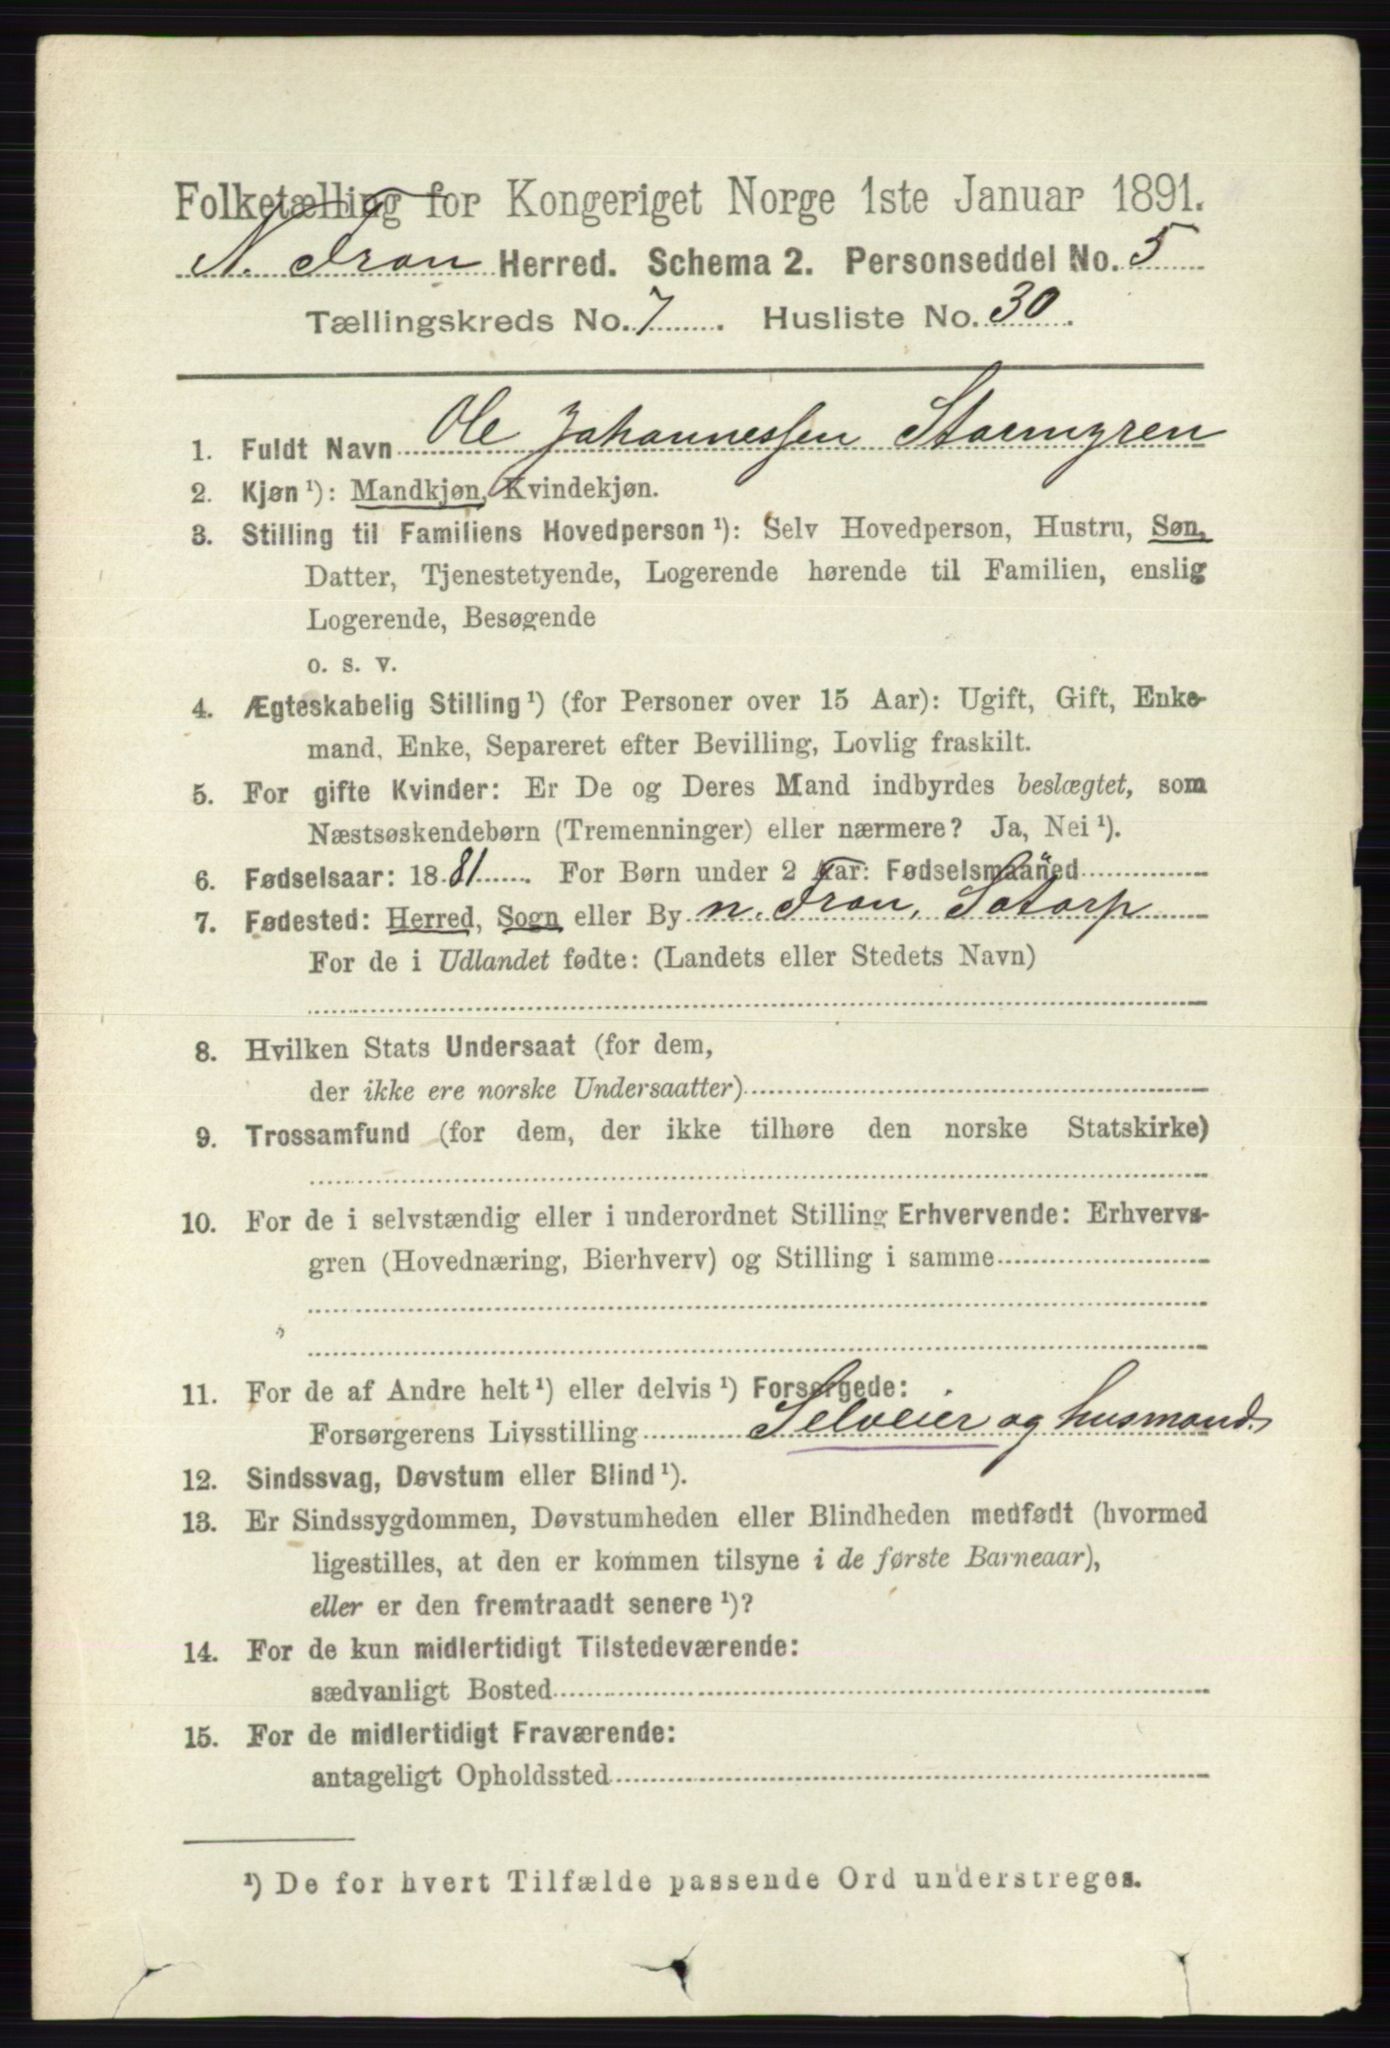 Folketælling for Kongeriget Norge 1ste Januar 1891.
N. Fron Herred. Schema 2. Personseddel No. 5
Tællingskreds No. 7. Husliste No. 30.
1. Fuldt Navn Ole Johannessen Stormyren
2. Kjøn ¹): Mandkjøn, Kvindekjøn.
3. Stilling til Familiens Hovedperson ¹): Selv Hovedperson, Hustru, Søn,
Datter, Tjenestetyende, Logerende hørende til Familien, enslig
Logerende, Besøgende
o. s. v.
4. Ægteskabelig Stilling ¹) (for Personer over 15 Aar): Ugift, Gift, Enke-
mand, Enke, Separeret efter Bevilling, Lovlig fraskilt.
5. For gifte Kvinder: Er De og Deres Mand indbyrdes beslægtet, som
Næstsøskendebørn (Tremenninger) eller nærmere? Ja, Nei ¹).
6. Fødselsaar: 1881. For Børn under 2 Aar: Fødselsmaaned
7. Fødested: Herred, Sogn eller By N. Fron, Sstorp
For de i Udlandet fødte: (Landets eller Stedets Navn)
8. Hvilken Stats Undersaat (for dem,
der ikke ere norske Undersaatter)
9. Trossamfund (for dem, der ikke tilhøre den norske Statskirke)
10. For de i selvstændig eller i underordnet Stilling Erhvervende: Erhvervs-
gren (Hovednæring, Bierhverv) og Stilling i samme
11. For de af Andre helt ¹) eller delvis ¹) Forsørgede:
Forsørgerens Livsstilling Selveier og husmand.
12. Sindssvag, Døvstum eller Blind ¹).
13. Er Sindssygdommen, Døvstumheden eller Blindheden medfødt (hvormed
ligestilles, at den er kommen tilsyne i de første Barneaar),
eller er den fremtraadt senere ¹)?
14. For de kun midlertidigt Tilstedeværende:
sædvanligt Bosted
15. For de midlertidigt Fraværende:
antageligt Opholdssted
¹) De for hvert Tilfælde passende Ord understreges.